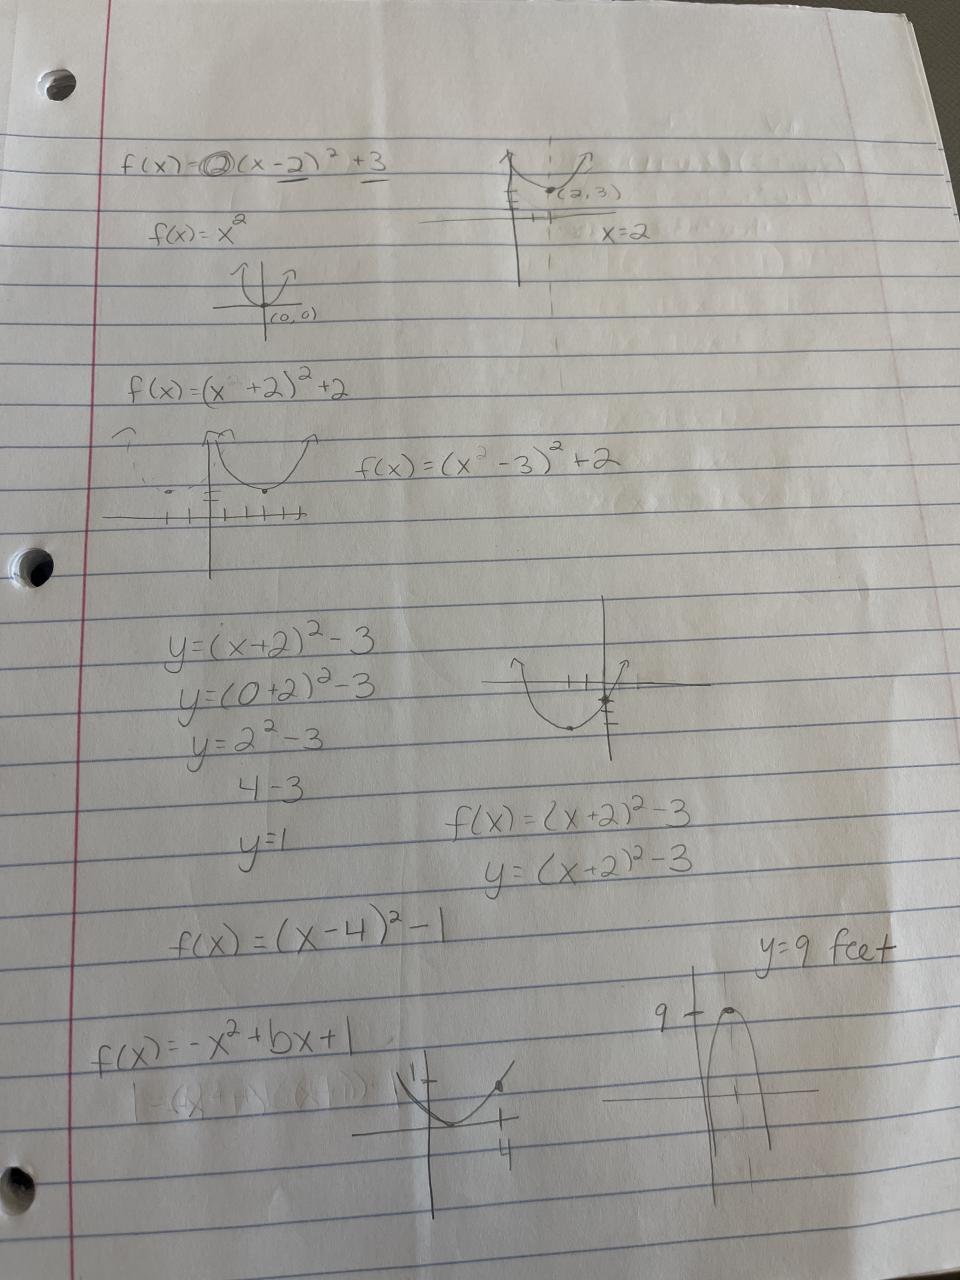 f(x)=2(x-2)²+3
(2,3)
x=2
f(x)=x²
(0,0)
f(x)=(x +2)²+2
f(x)=(x² -3)²+2
y=(x+2)²-3
y=(0+2)²-3
y=2²-3
4-3
y=1
f(x)=(x+2)²-3
y=(x+2)²-3
f(x)=(x-4)²-1
y=9 feet
9
f(x)=-x²+bx+1
1
4